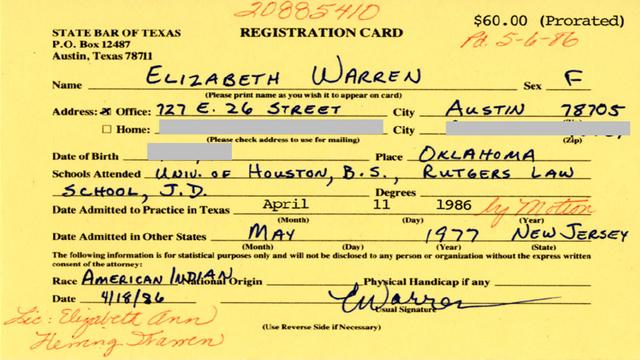 20885410
$60.00 (Prorated)
STATE BAR OF TEXAS
P.O. Box 12487
Austin, Texas 78711
REGISTRATION CARD
Pd. 5-6-86
Name ELIZABETH WARREN Sex F
(Please print name as you wish it to appear on card)
Address: Office: 727 E. 26 STREET City AUSTIN 78705
Home: City
(Please check address to use for mailing) (Zip)
Date of Birth Place OKLAHOMA
Schools Attended UNIV. OF HOUSTON, B.S., RUTGERS LAW
SCHOOL, J.D. Degrees
Date Admitted to Practice in Texas April 11 1986 by Motion
(Month) (Day) (Year)
Date Admitted in Other States MAY 1977 NEW JERSEY
(Month) (Day) (Year) (State)
The following information is for statistical purposes only and will not be disclosed to any person or organization without the express written
consent of the attorney:
Race AMERICAN INDIAN National Origin Physical Handicap if any
Date 4/18/86 EWarren
Usual Signature
Lic: Elizabeth Ann
Herring Warren
(Use Reverse Side if Necessary)